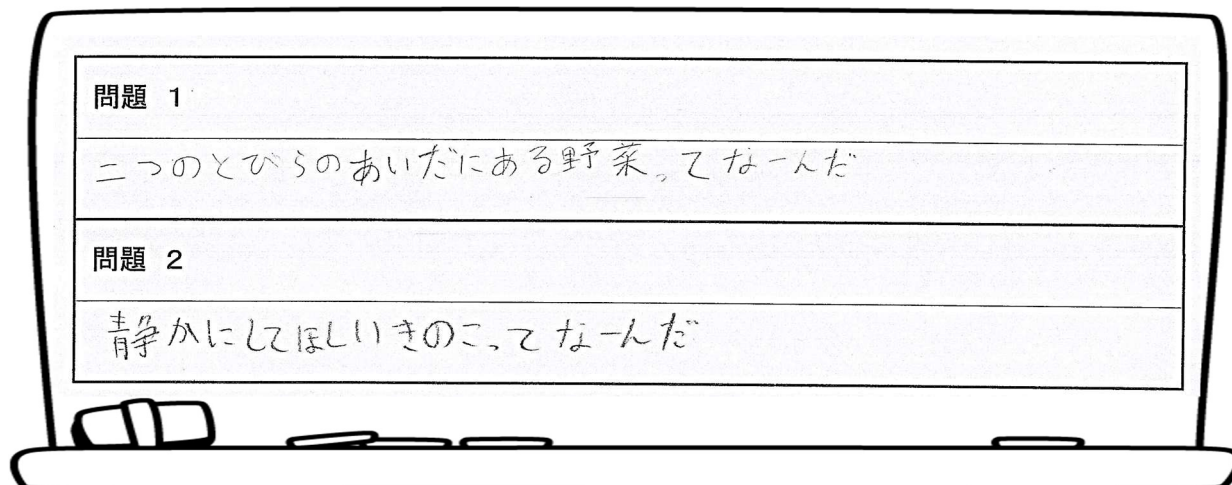 問題 1
二つのとびらのあいだにある野菜ってなーんだ
問題 2
静かにしてほしいきのこってなーんだ